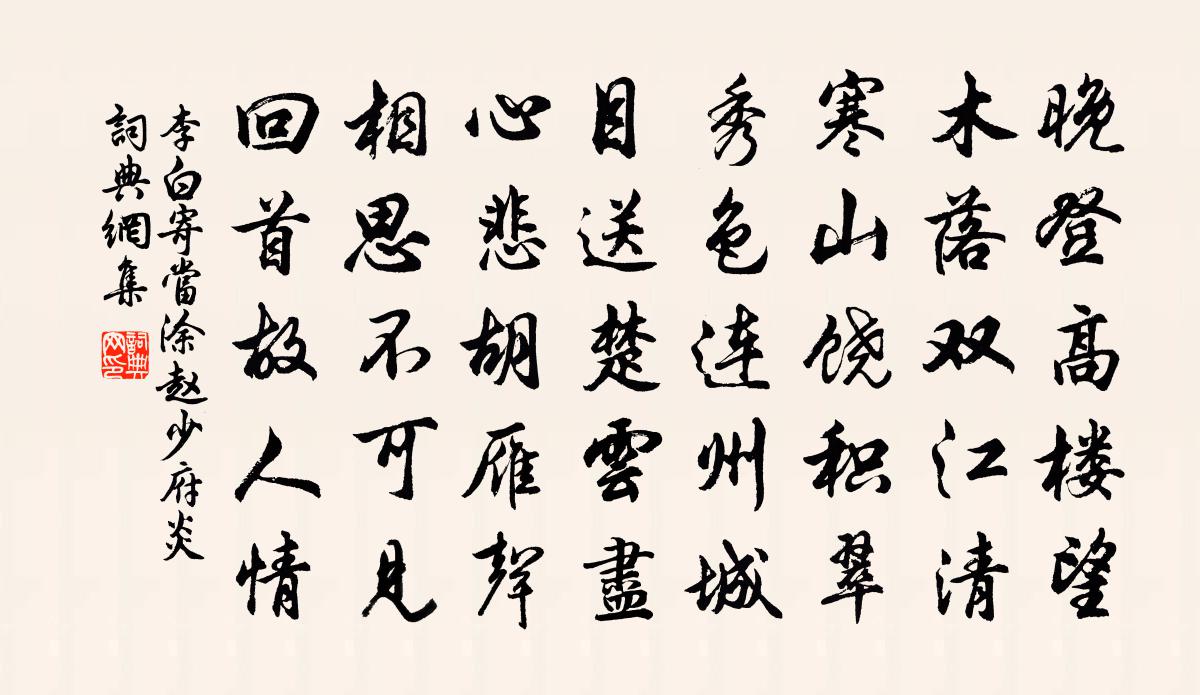 晚登高楼望
木落双江清
寒山饶积翠
秀色连州城
目送楚雲盡
心悲胡雁聲
相思不可見
回首故人情
李白寄當涂赵少府炎
詞典網集
詞典網印